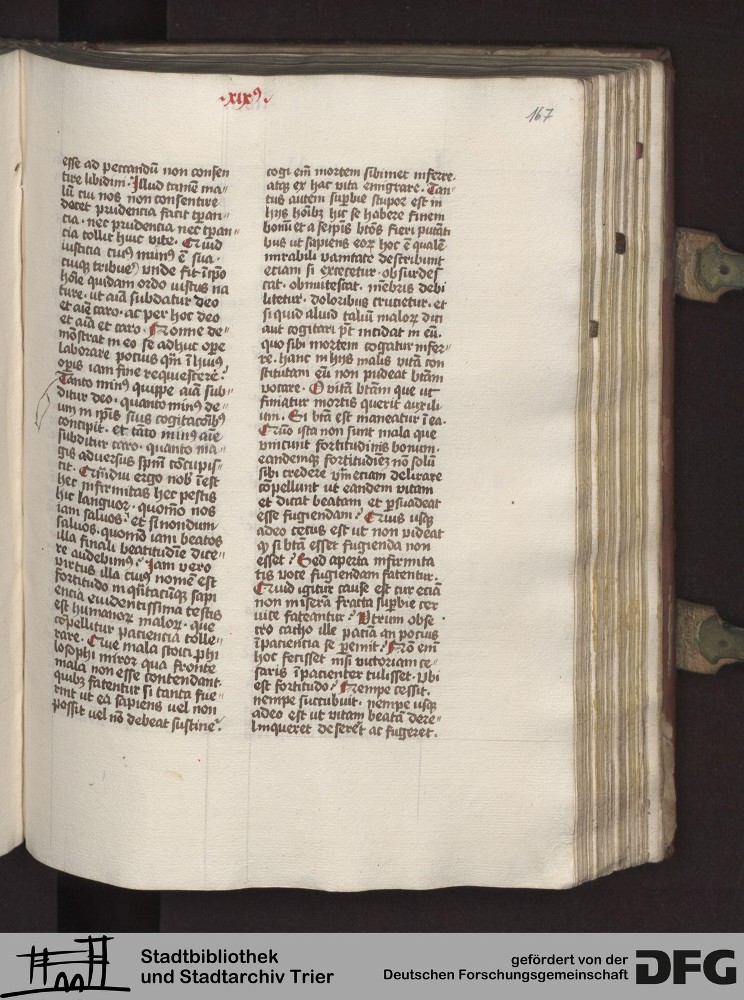 ·xix⁹·
167
esse ad peccandū non consen
tire libidini. Illud tamē ma⸗
lū cui nos non consentire
docet prudencia facit tꝑan⸗
cia. nec prudencia nec tꝑan⸗
cia tollit huic vite. Quid
iusticia cui⁹ mun⁹ ē sua
cuiqꝫ tribue⁾ unde fit ī ip̄o
hōīe quidam ordo iustus na
ture. ut aīa subdatur deo
et aīe caro. ac per hoc deo
et aīa et caro. Nonne de⸗
mōstrat in eo se adhuc oꝑe
laborare pocius qm̄ ī hui⁹
oꝑis iam fine requiescere?
Tanto min⁹ quippe aīa sub⸗
ditur deo. quanto min⁹ de⸗
um in ip̄is suis cogitacōib⁹
concipit. et tāto min⁹ aīe
subditur caro. quanto ma⸗
gis adversus spm̄ cōcupis⸗
cit. Qmdiu ergo nob̄ īest
hec infirmitas hec pestis
hic languor. quomō nos
iam saluos? et si nondum
saluos. quomō iam beatos
illa finali beatitudīe dice⸗
re audebim⁹? Iam vero
virtus illa cui⁹ nomē est
fortitudo in q̄ntacūqꝫ sapi
encia evidentissima testis
est humanoꝝ maloꝝ. que
cōpellitur paciencia tolle⸗
rare. Que mala stoici phi
losophi miror qua fronte
mala non esse contendant.
quibꝫ fatentur si tanta fue⸗
rint ut ea sapiens vel non
possit vel nō debeat sustine⁾.
cogi eū mortem sibimet inferre.
atqꝫ ex hac vita emigrare. Tan⸗
tus autem suꝑbie stupor est in
hijs hoīb⁹ hic se habere finem
boni et a seipis btōs fieri putāti
bus ut sapiens eoꝝ hoc ē qualē
mirabili vanitate describunt
eciam si excecetur. obsurdes
cat. obmutescat. mēbris debi
litetur. doloribus crucietur. et
si quid aliud taliū maloꝝ dici
aut cogitari pt̄ incidat in eū.
quo sibi mortem cogatur infer⸗
re. hanc in hijs malis vitā con
stitutam eū non pudeat btām
vocare. O vitā btām que ut
finiatur mortis querit auxili
um. Si btā est maneatur ī ea.
Quō ista non sunt mala que
vincunt fortitudinis bonum.
eandemqꝫ fortitudiēꝫ nō solū
sibi credere vm̄ eciam delirare
cōpellunt ut eandem vitam
et dicat beatam et ꝑsuadeat
esse fugiendam? Quis usqꝫ
adeo cetus est ut non videat
ꝙ si btā esset fugienda non
esset? Sed aperta infirmita
tis voce fugiendam fatentur.
Quid igitur cause est cur eciā
non miserā fracta suꝑbie cer
vice fateantur? Utrum obse
cro catho ille paciā an pocius
īpaciencia se ꝑemit? Nō eīm
hoc fecisset nisi victoriam ce⸗
saris īpacienter tulisset. Ubi
est fortitudo? Nempe cessit.
nempe succubuit. nempe usqꝫ
adeo est ut vitam beatā dere⸗
linqueret deseret ac fugeret.
Stadtbibliothek
und Stadtarchiv Trier
gefördert von der
Deutschen Forschungsgemeinschaft
DFG